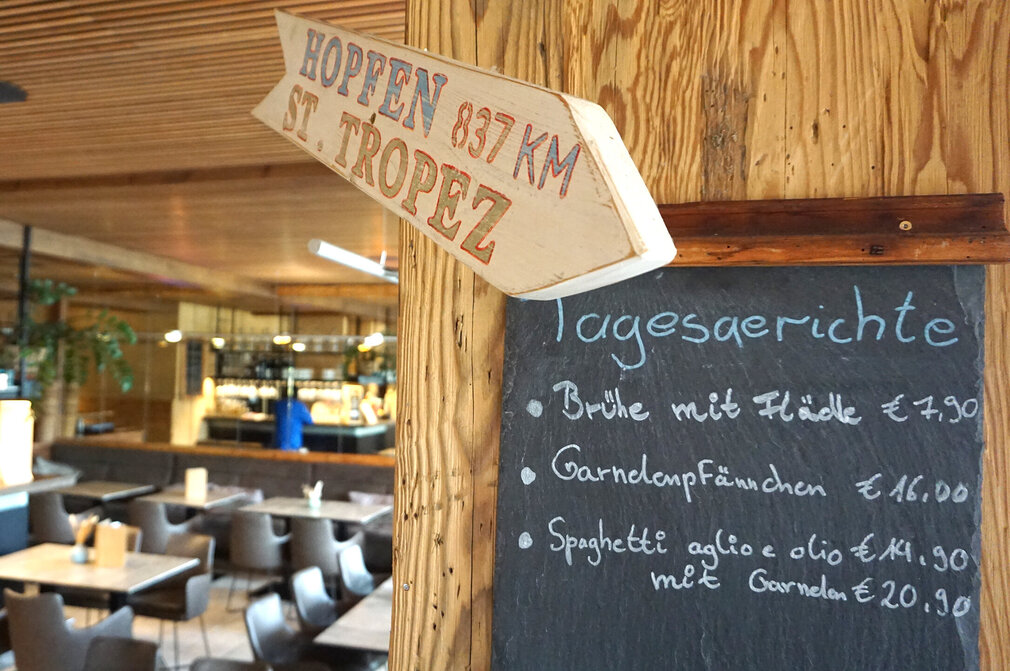 HOPFEN 837 KM
ST. TROPEZ
Tagesgerichte
• Brühe mit Flädle € 7,90
• Garnelenpfännchen € 16.00
• Spaghetti aglio e olio € 14.90
mit Garnelen € 20,90